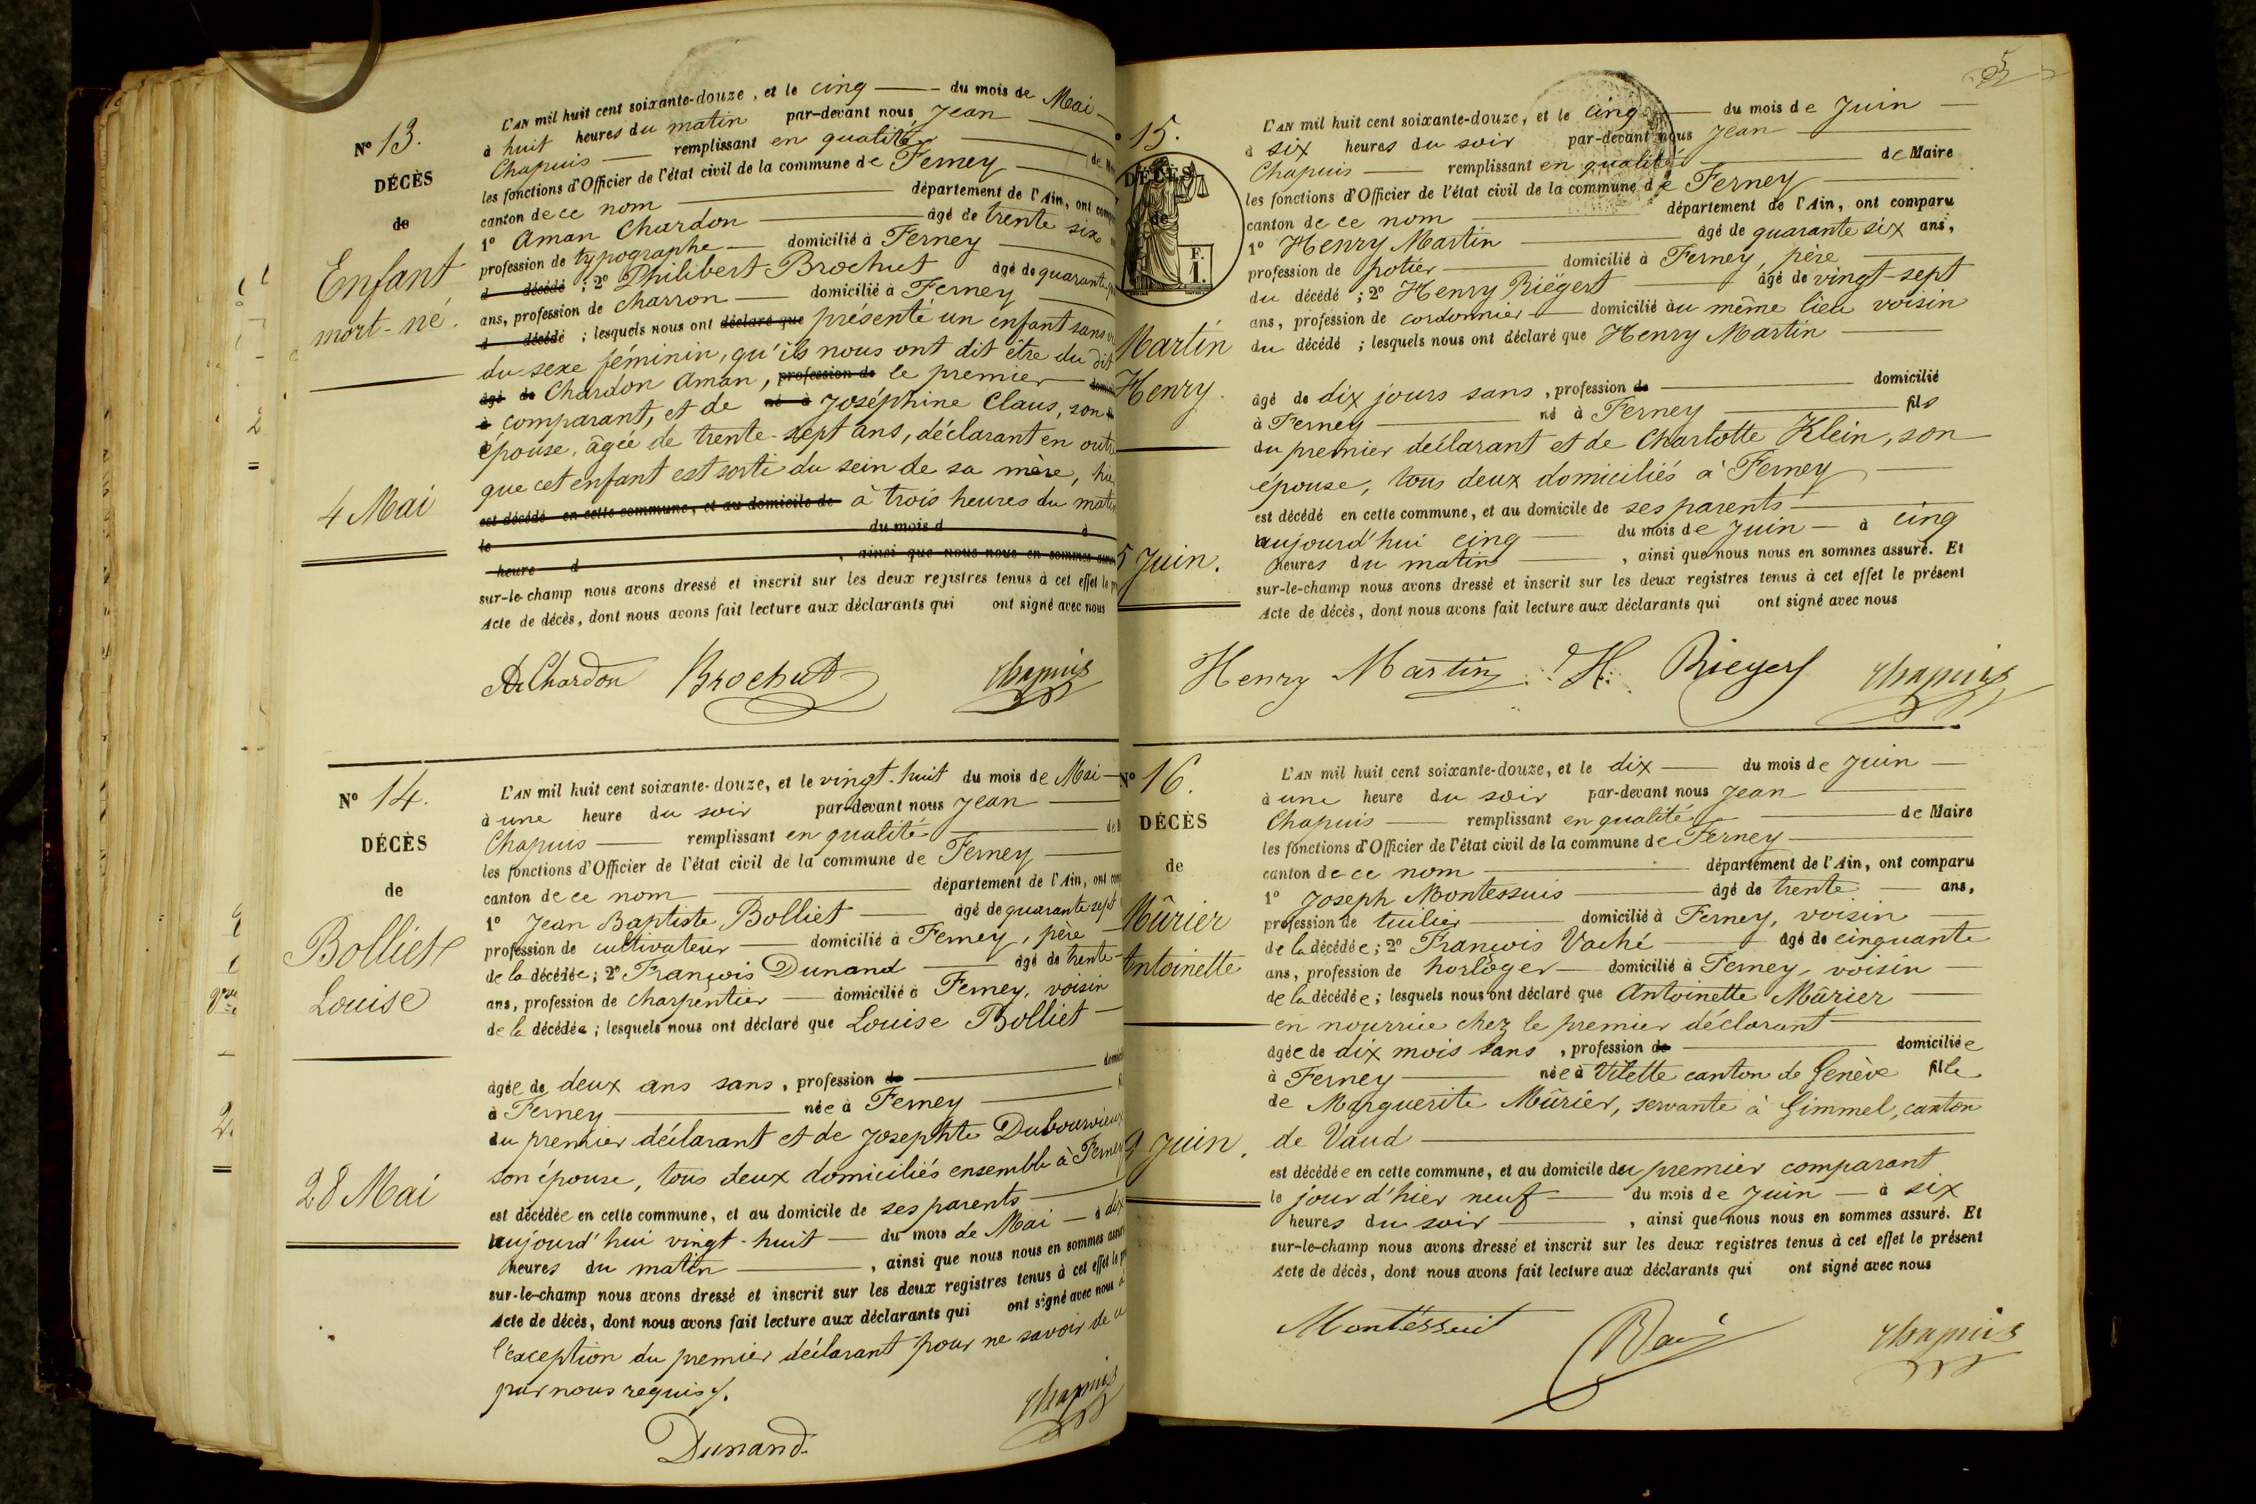 Nº 13.
DÉCÈS
de
Enfant
mort-né.
4 Mai
L'AN mil huit cent soixante-douze, et le cinq du mois de Mai
à huit heures du matin par-devant nous Jean
Chapuis remplissant en qualité de
les fonctions d'Officier de l'état civil de la commune de Ferney
canton de ce nom département de l'Ain, ont
1º Aman Chardon âgé de trente six
profession de typographe domicilié à Ferney
d décédé ; 2º Philibert Brochut âgé de quarante
ans, profession de charron domicilié à Ferney
d décédé ; lesquels nous ont déclaré que présenté un enfant sans
du sexe féminin, qu'ils nous ont dit être du dit
âgé de Chardon Aman, profession de le premier
à comparant, et de né à Joséphine Claus, son
épouse, âgée de trente-sept ans, déclarant en outre
que cet enfant est sorti du sein de sa mère,
est décédé en cette commune, et au domicile de à trois heures du matin
le du mois d à
heure d , ainsi que nous nous en sommes
sur-le-champ nous avons dressé et inscrit sur les deux registres tenus à cet effet le
Acte de décès, dont nous avons fait lecture aux déclarants qui ont signé avec nous
Chardon Brochut Chapuis
Nº 14.
DÉCÈS
de
Bolliet
Louise
28 Mai
L'AN mil huit cent soixante-douze, et le vingt-huit du mois de Mai
à une heure du soir par-devant nous Jean
Chapuis remplissant en qualité de
les fonctions d'Officier de l'état civil de la commune de Ferney
canton de ce nom département de l'Ain, ont
1º Jean Baptiste Bolliet âgé de quarante sept
profession de cultivateur domicilié à Ferney, père
de la décédée ; 2º François Dunand âgé de trente
ans, profession de charpentier domicilié à Ferney, voisin
de la décédée ; lesquels nous ont déclaré que Louise Bolliet
âgée de deux ans sans, profession de
à Ferney née à Ferney
du premier déclarant et de Josephte
son épouse, tous deux domiciliés ensemble à Ferney
est décédée en cette commune, et au domicile de ses parents
aujourd'hui vingt-huit du mois de Mai à dix
heures du matin , ainsi que nous nous en sommes
sur-le-champ nous avons dressé et inscrit sur les deux registres tenus à cet effet le
Acte de décès, dont nous avons fait lecture aux déclarants qui ont signé avec nous à
l'exception du premier déclarant pour ne savoir de ce
par nous requis.
Chapuis
Dunand
15.
DÉCÈS
de
F.
1.
Martin
Henry.
5 Juin.
L'AN mil huit cent soixante-douze, et le cinq du mois de Juin
à six heures du soir par-devant nous Jean
Chapuis remplissant en qualité de Maire
les fonctions d'Officier de l'état civil de la commune de Ferney
canton de ce nom département de l'Ain, ont comparu
1º Henry Martin âgé de quarante six ans,
profession de potier domicilié à Ferney, père
du décédé ; 2º Henry Riëgert âgé de vingt-sept
ans, profession de cordonnier domicilié au même lieu voisin
du décédé ; lesquels nous ont déclaré que Henry Martin
âgé de dix jours sans, profession de domicilié
à Ferney né à Ferney fils
du premier déclarant et de Charlotte Klein, son
épouse, tous deux domiciliés à Ferney
est décédé en cette commune, et au domicile de ses parents
aujourd'hui cinq du mois de Juin à cinq
heures du matin , ainsi que nous nous en sommes assuré. Et
sur-le-champ nous avons dressé et inscrit sur les deux registres tenus à cet effet le présent
Acte de décès, dont nous avons fait lecture aux déclarants qui ont signé avec nous
Henry Martin H. Riegert Chapuis
Nº 16.
DÉCÈS
de
Mûrier
Antoinette
9 Juin.
L'AN mil huit cent soixante-douze, et le dix du mois de Juin
à une heure du soir par-devant nous Jean
Chapuis remplissant en qualité de Maire
les fonctions d'Officier de l'état civil de la commune de Ferney
canton de ce nom département de l'Ain, ont comparu
1º Joseph Montessuis âgé de trente ans,
profession de tuilier domicilié à Ferney, voisin
de la décédée ; 2º François Vaché âgé de cinquante
ans, profession de horloger domicilié à Ferney, voisin
de la décédée ; lesquels nous ont déclaré que Antoinette Mûrier
en nourrice chez le premier déclarant
âgée de dix mois sans, profession de domiciliée
à Ferney née à Vilette canton de Genève fille
de Marguerite Mûrier, servante à Gimmel, canton
de Vaud
est décédée en cette commune, et au domicile du premier comparant
le jour d'hier neuf du mois de Juin à six
heures du soir , ainsi que nous nous en sommes assuré. Et
sur-le-champ nous avons dressé et inscrit sur les deux registres tenus à cet effet le présent
Acte de décès, dont nous avons fait lecture aux déclarants qui ont signé avec nous
Montessuit Chapuis